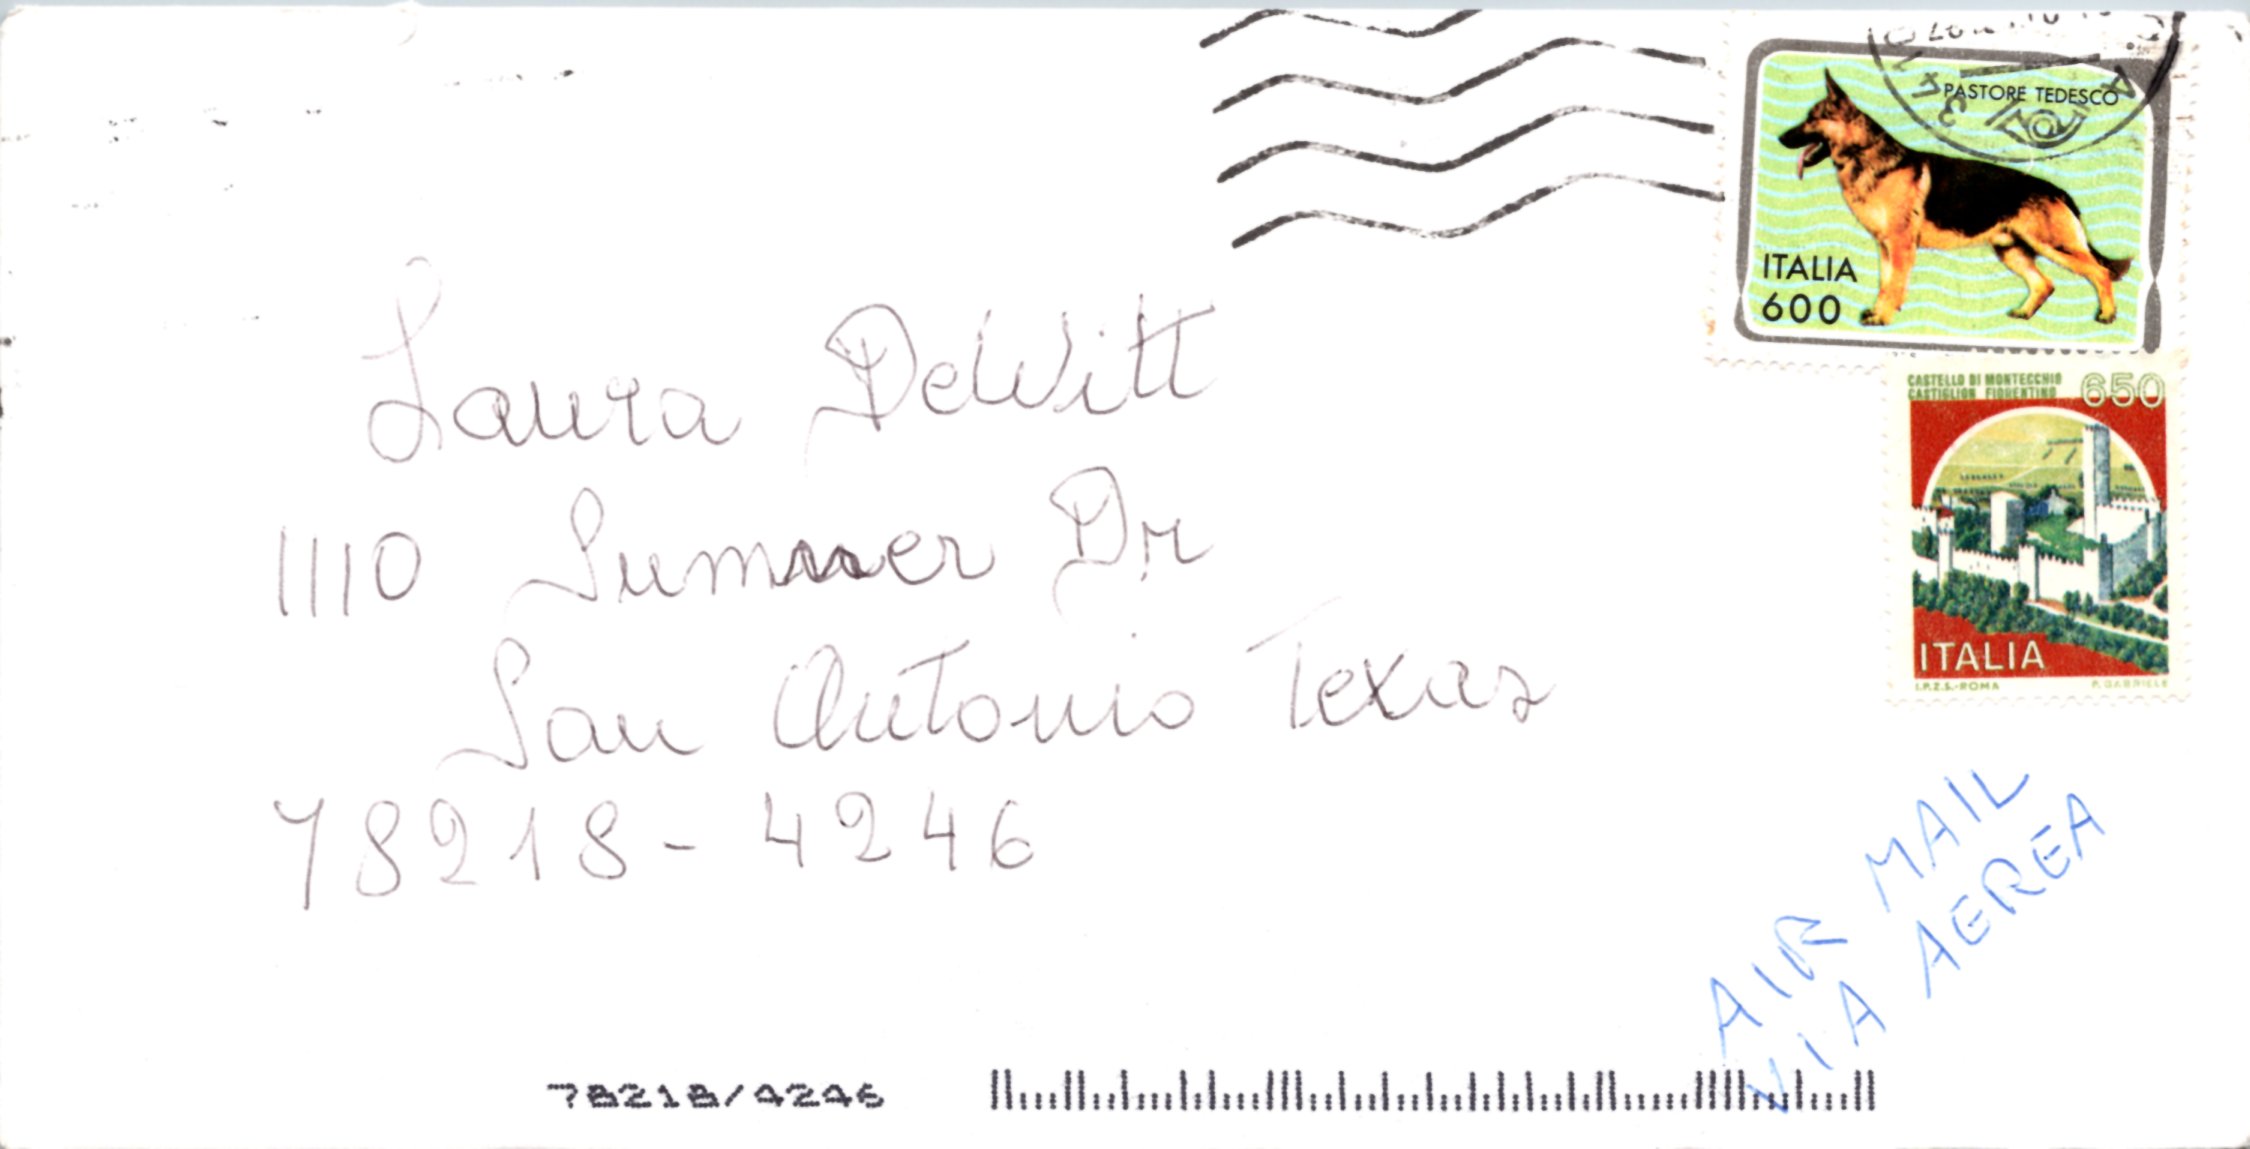 PASTORE TEDESCO
ITALIA
600
CASTELLO DI MONTECCHIO
CASTIGLION FIORENTINO
650
ITALIA
I.P.Z.S.-ROMA P. GABRIELE
Laura DeWitt
1110 Summer Dr
San Antonio Texas
78218-4246
AIR MAIL
VIA AEREA
78218/4246